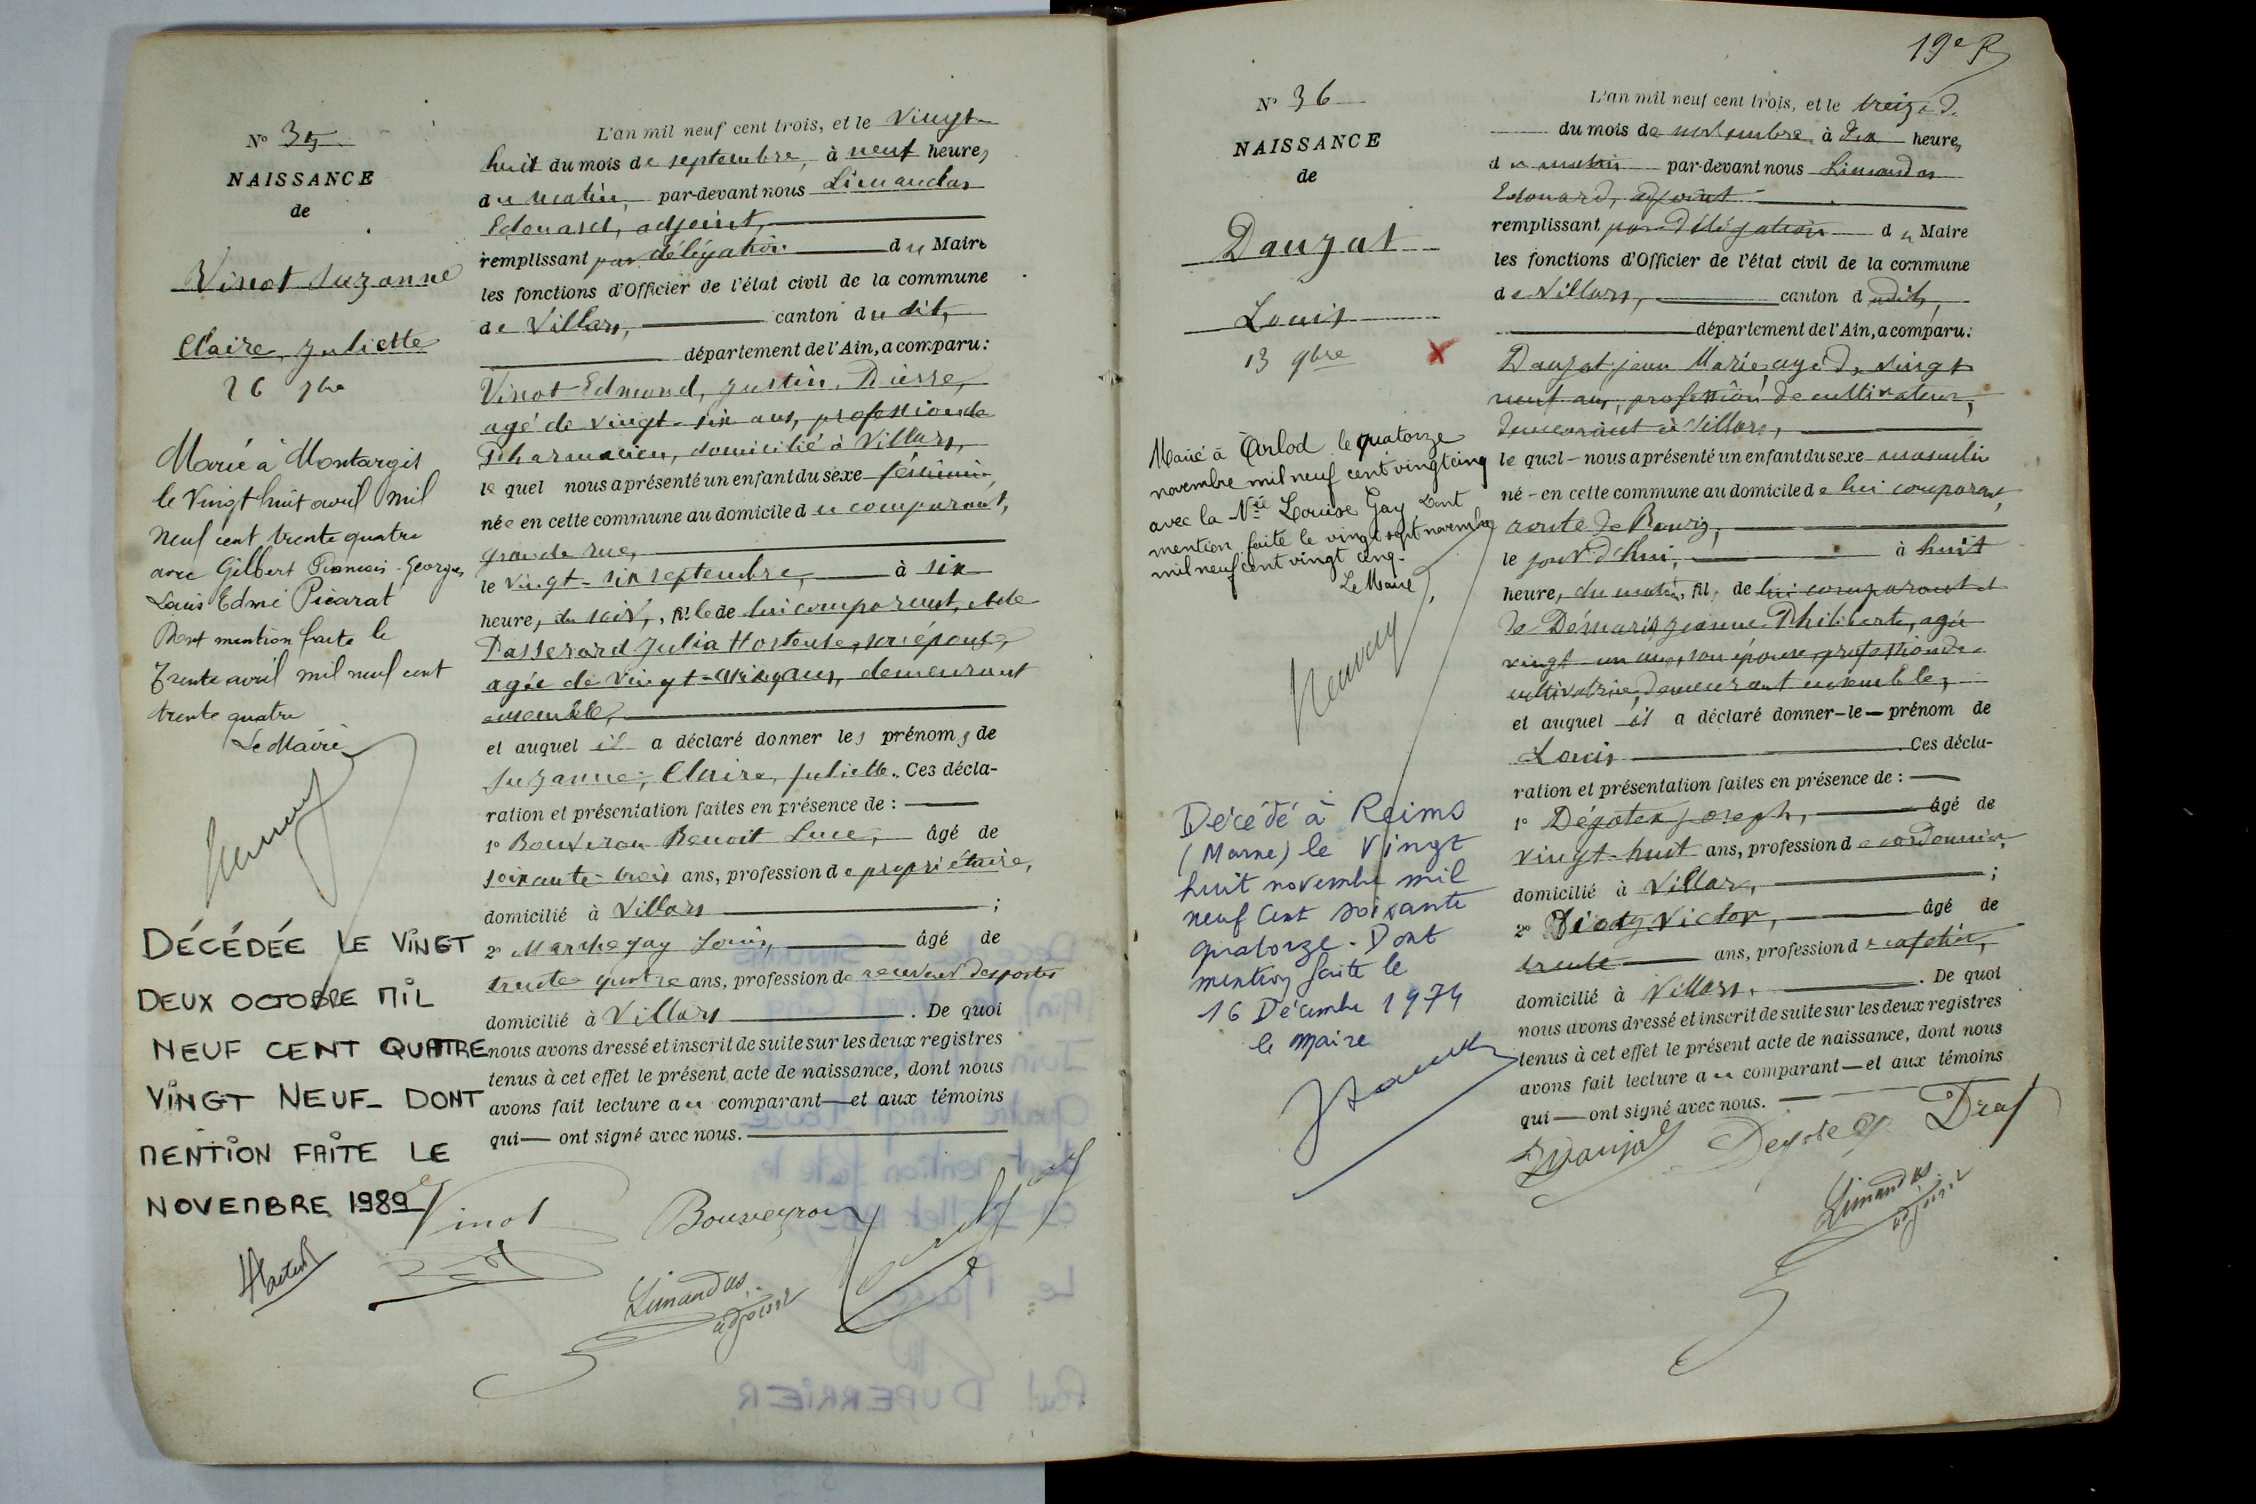 N° 35
NAISSANCE
de
Vinot Suzanne
Claire, Juliette
26 7bre
Marié à Montargis
le Vingt huit avril mil
Neuf cent trente quatre
avec Gilbert François-Georges
Louis Edmé Picarat
Dont mention faite le
Trente avril mil neuf cent
trente quatre
Le Maire
DÉCÉDÉE LE VINGT
DEUX OCTOBRE MIL
NEUF CENT QUATRE
VINGT NEUF_ DONT
MENTION FAITE LE
NOVEMBRE 1989
L'an mil neuf cent trois, et le Vingt-
huit du mois de septembre, à neuf heures
du matin, par-devant nous Limandas
Edouard, adjoint,
remplissant par délégation du Maire
les fonctions d'Officier de l'état civil de la commune
de Villars, canton du dit,
département de l'Ain, a comparu:
Vinot Edmond, Justin, Pierre,
agé de vingt-six ans, profession de
Pharmacien, domicilié à Villars,
le quel nous a présenté un enfant du sexe féminin,
née en cette commune au domicile du comparant,
grande rue,
le vingt-six septembre, à six
heures, du soir, fille de lui comparant, et de
Passerard Julia Hortense, son épouse,
agée de vingt-cinq ans, demeurant
ensemble,
et auquel il a déclaré donner les prénoms de
Suzanne, Claire, Juliette. Ces décla-
ration et présentation faites en présence de :
1° Bouveron Benoit Luce, âgé de
soixante-trois ans, profession de propriétaire,
domicilié à Villars ;
2° Marchegay Louis, âgé de
trente quatre ans, profession de receveur des postes
domicilié à Villars . De quoi
nous avons dressé et inscrit de suite sur les deux registres
tenus à cet effet le présent acte de naissance, dont nous
avons fait lecture au comparant — et aux témoins
qui — ont signé avec nous.
Vinot
Bouveyron
Limandas
adjoint
19e
N° 36
NAISSANCE
de
Dauzat
Louis
13 9bre
Marié à Arlod le quatorze
novembre mil neuf cent vingt cinq
avec la Née Louise Gay Dont
mention faite le vingt sept novembre
mil neuf cent vingt cinq.
Le Maire,
Décédé à Reims
(Marne) le Vingt
huit novembre mil
neuf cent soixante
quatorze. Dont
mention faite le
16 Décembre 1974
le Maire
L'an mil neuf cent trois, et le treize
du mois de novembre à dix heures
du matin par-devant nous Limandas
Edouard, adjoint
remplissant par délégation du Maire
les fonctions d'Officier de l'état civil de la commune
de Villars, canton dudit,
département de l'Ain, a comparu:
Dauzat Jean Marie, agé de vingt
neuf ans, profession de cultivateur,
demeurant à Villars,
le quel — nous a présenté un enfant du sexe masculin
né — en cette commune au domicile de lui comparant,
route de Bourg,
le jour d'hui, à huit
heures, du matin, fils de lui comparant et
de Démaris Jeanne Philiberte, agée
vingt-un ans, son épouse, profession de
cultivatrice, demeurant ensemble,
et auquel il a déclaré donner — le — prénom de
Louis Ces décla-
ration et présentation faites en présence de :
1° Dégotex Joseph, âgé de
vingt-huit ans, profession de cordonnier,
domicilié à Villars, ;
2° Victor, âgé de
trente ans, profession de cafetier,
domicilié à Villars. . De quoi
nous avons dressé et inscrit de suite sur les deux registres
tenus à cet effet le présent acte de naissance, dont nous
avons fait lecture au comparant — et aux témoins
qui — ont signé avec nous.
Dauzat
Limandas
adjoint